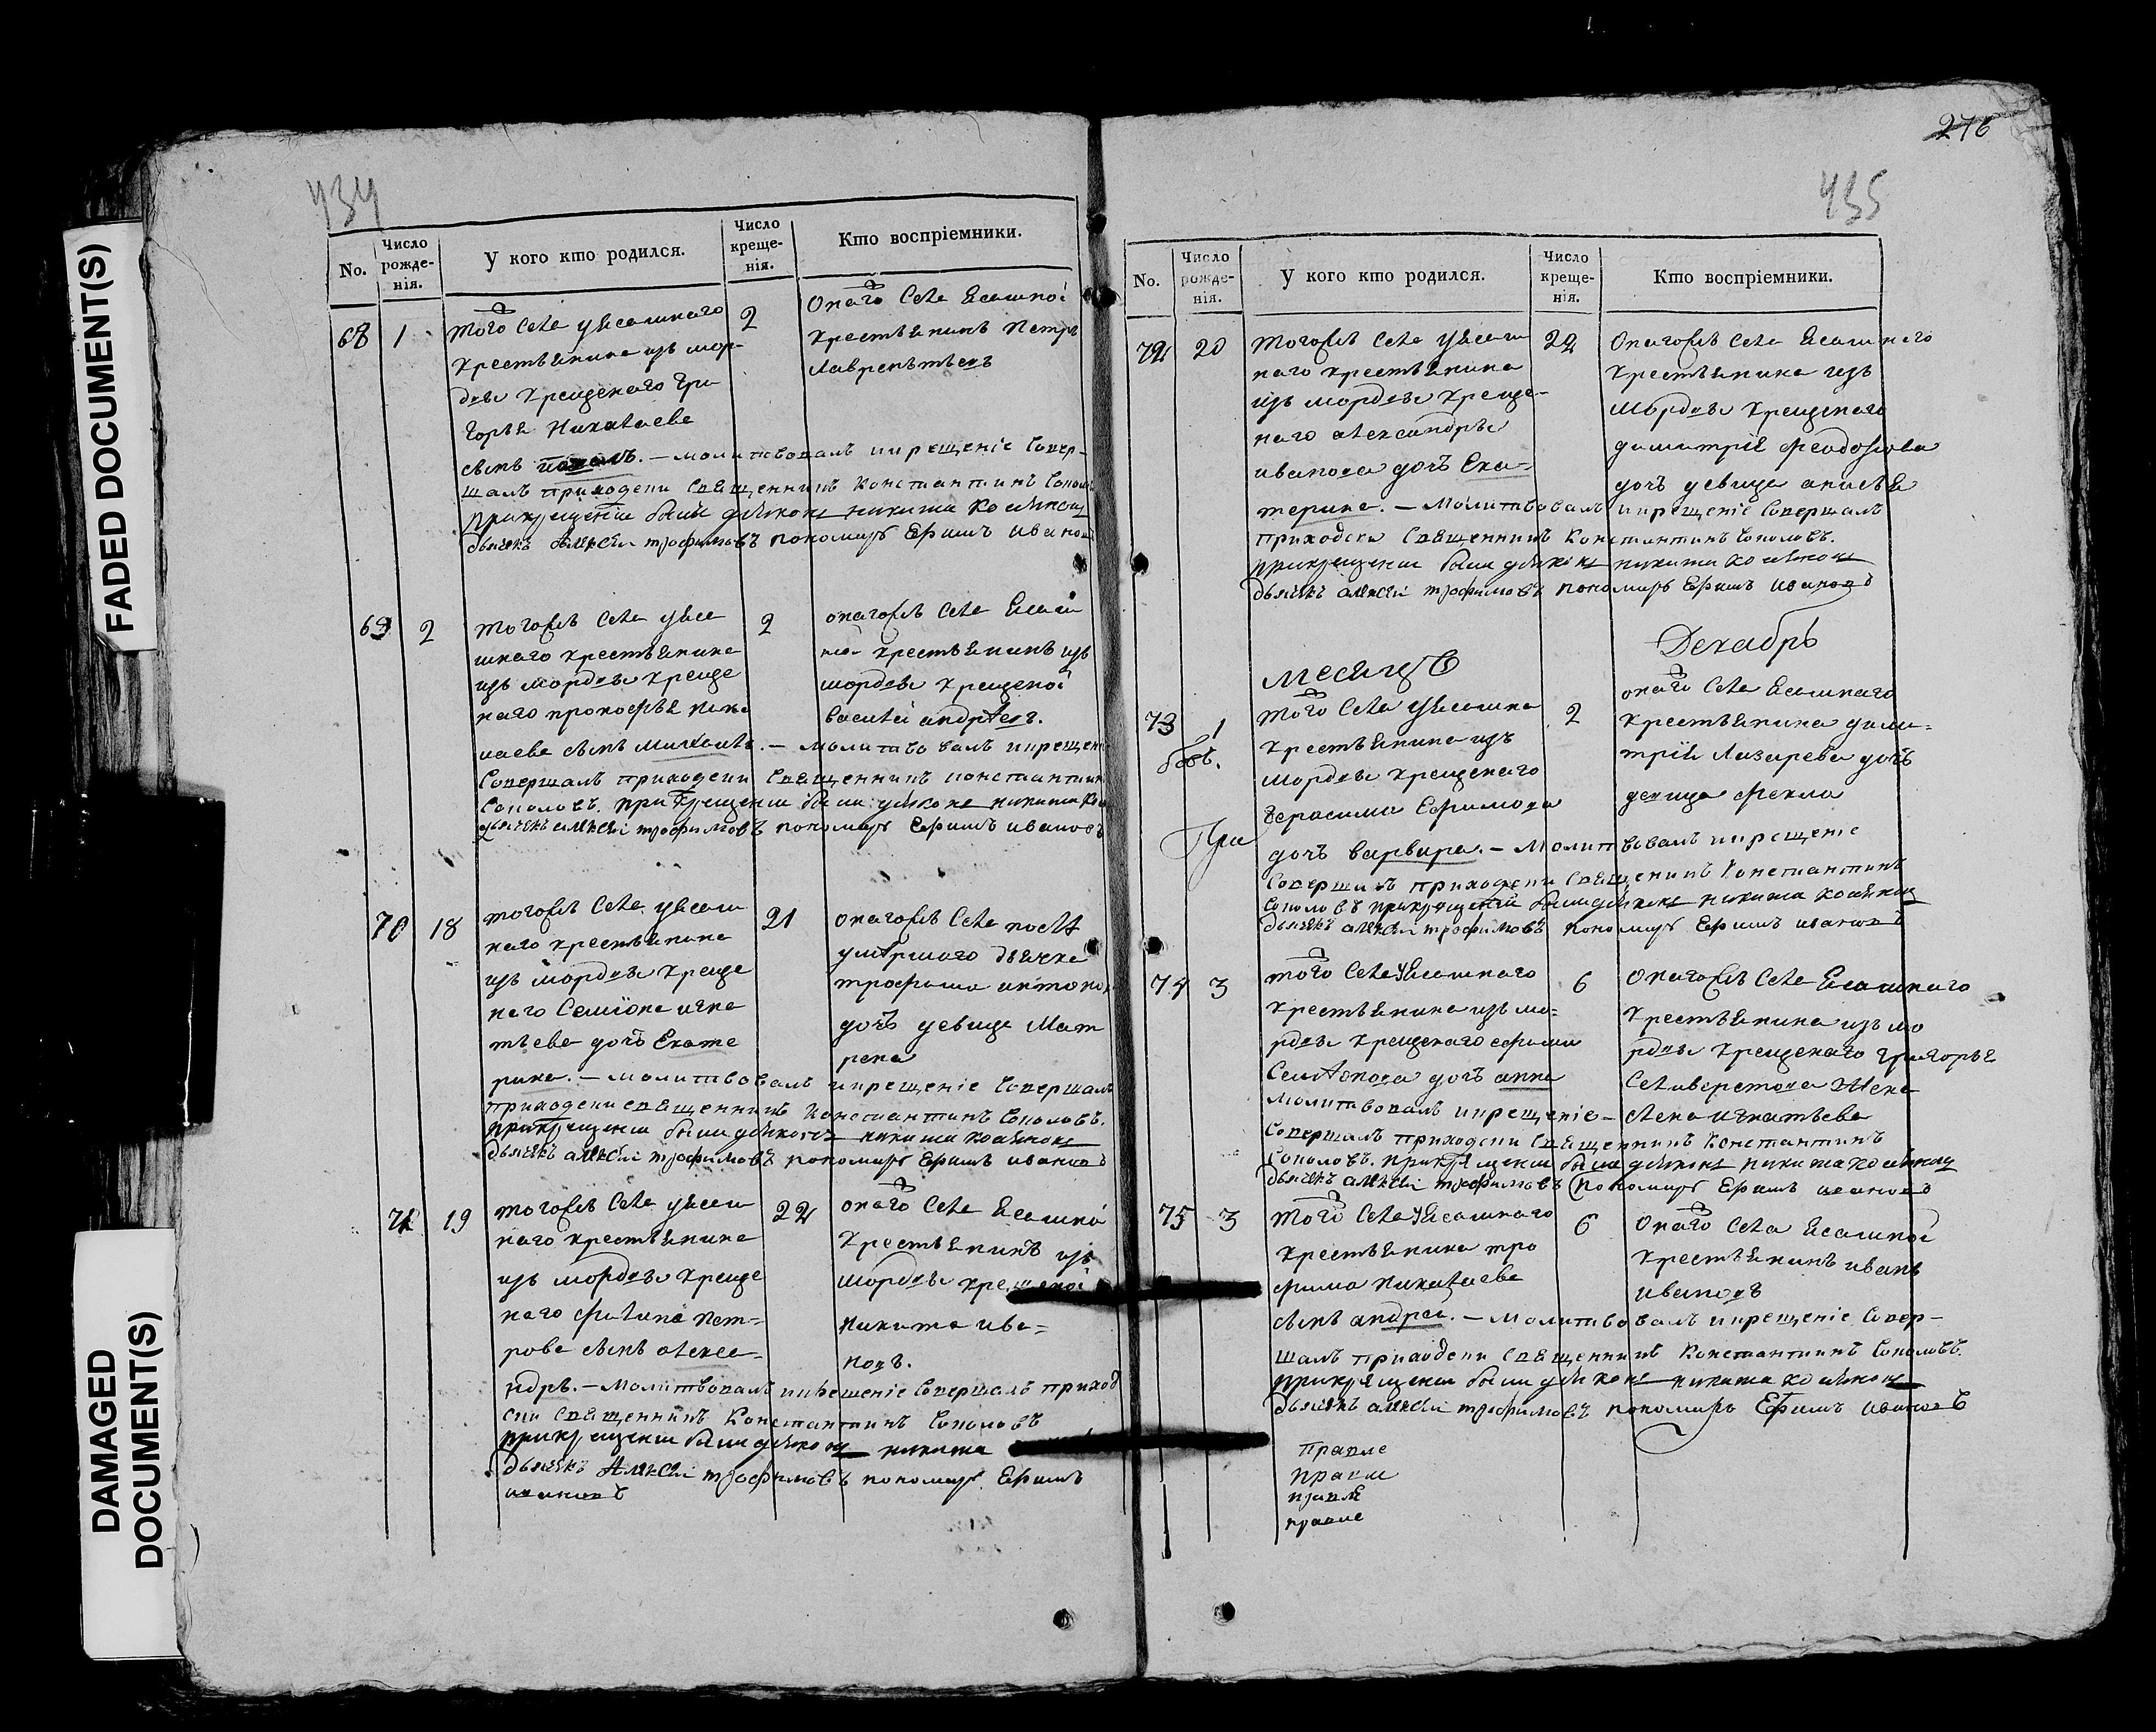 FADED DOCUMENT(S)
DAMAGED
DOCUMENT(S)
434
No.
Число рожде-нія.
У кого кто родился.
Число креще-нія.
Кто воспріемники.
68 1
того села уясашнаго
крестьянина изъ мор-
двы крещенаго гри
горья николаева
сынъ
молитвовалъ икрещеніе совер-
шалъ приходски священникъ константинъ
прикрещеніи были дьяконъ никита
дьячекъ алексѣи трофимовъ пономарь Ефимъ иванов
2
Онаго села Ясашной
крестьянинъ Петръ
Лаврентьевъ
69 2
тогожъ села уяса
шнаго крестьянина
изъ мордвы креще
наго прокофья нико
лаева сынъ михаилъ. — молитвовалъ икрещені
совершалъ приходски священникъ константин
соколовъ. прикрещеніи были дьяконъ никита
дьячекъ алексѣи трофимовъ пономарь Ефимъ ивановъ
2
онагожъ села Ясаш
ной крестьянинъ изъ
мордвы крещеной
василей андреевъ.
70 18
тогожъ села уясаш
наго крестьянина
изъ мордвы креще
наго Семіона игна
тьева дочь Екате
рина. — молитвовалъ икрещеніе совершалъ
приходски священникъ константинъ соколовъ.
прикрещеніи были дьяконъ никита
дьячекъ алексѣи трофимовъ пономарь Ефимъ ивановъ
21
онагожъ села послѣ
умѣршаго дьячка
трофима антоно
дочь девица Мат
рена
71 19
тогожъ села уясаш
наго крестьянина
изъ мордвы креще
наго филипа пет=
рова сынъ алекса=
ндръ. — молитвовалъ икрещеніе совершалъ приход
ски священникъ Константинъ соколовъ
прикрещеніи были дьяконъ никита
дьячекъ Алексѣи трофимовъ пономарь Ефимъ
ивановъ
22
онаго села Ясашной
крестьянинъ изъ
мордвы крещеной
никита ива=
новъ.
276
435
No.
Число рожде-нія.
У кого кто родился.
Число креще-нія.
Кто воспріемники.
72 20
тогожъ села уясаш
наго крестьянина
изъ мордвы креще-
наго александры
иванова дочь Ека=
терина. — Молитвовалъ икрещеніе совершалъ
приходски священникъ Константинъ соколовъ.
прикрещеніи были дьяконъ никита
дьячекъ алексѣи трофимовъ пономарь Ефимъ ивановъ
22
Онагожъ села Ясашнаго
крестьянина изъ
мордвы крещенаго
димитрія феодосіева
дочь девица анисья
месяцъ
Декабрь
73 1
того села уясашна
крестьянина изъ
мордвы крещенаго
герасима Ефимова
дочь варвара. — Молитвовалъ икрещеніе
совершалъ приходски священникъ Константинъ
соколовъ прикрещеніи были дьяконъ никита
дьячекъ алексѣи трофимовъ пономарь Ефимъ ивановъ
2
онаго села Ясашнаго
крестьянина дими=
трія Лазарева дочь
девица фекла
74 3
того села уясашнаго
крестьянина изъ мо=
рдвы крещенаго ефима
Семѣонова дочь анна
молитвовалъ икрещеніе —
совершалъ приходски священникъ Константинъ
соколовъ. прикрещеніи были дьяконъ никита
дьячекъ алексѣи трофимовъ пономарь Ефимъ ивановъ
6
Онагожъ села Ясашнаго
крестьянина изъ мо
рдвы крещенаго григорья
Селиверстова жена
елена игнатьева
75 3
того села уясашнаго
крестьянина тро
фима николаева
сынъ андреи. — молитвовалъ икрещеніе совер-
шалъ приходски священникъ Константинъ соколовъ.
прикрещеніи были дьяконъ никита
дьячекъ алексѣи трофимовъ пономарь Ефимъ ивановъ
6
Онаго села Ясашной
крестьянинъ иванъ
ивановъ